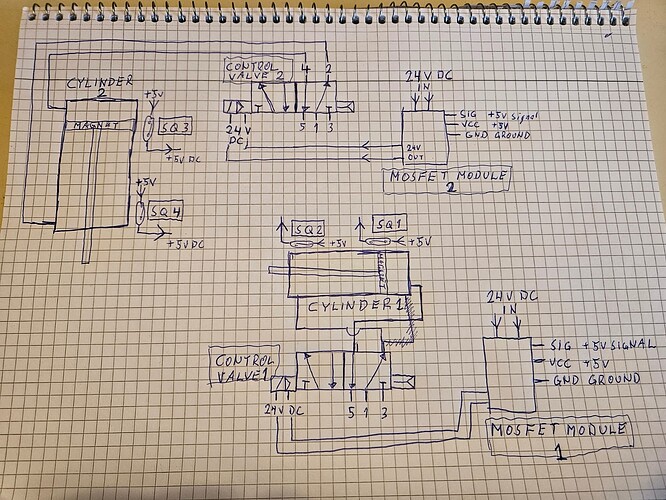 CYLINDER
2
MAGNET
+5V
SQ3
+5V DC
+5V
SQ4
+5VDC
CONTROL
VALVE 2
4 2
5 1 3
24V
DC
24V DC
IN
SIG +5V Signal
VCC +5V
GND GROUND
24V
OUT
MOSFET MODULE
2
SQ2
+5V
SQ1
+5V
MAGNET
CYLINDER 1
CONTROL
VALVE 1
24V DC
5 1 3
24V DC
IN
SIG +5V SIGNAL
VCC +5V
GND GROUND
MOSFET MODULE
1